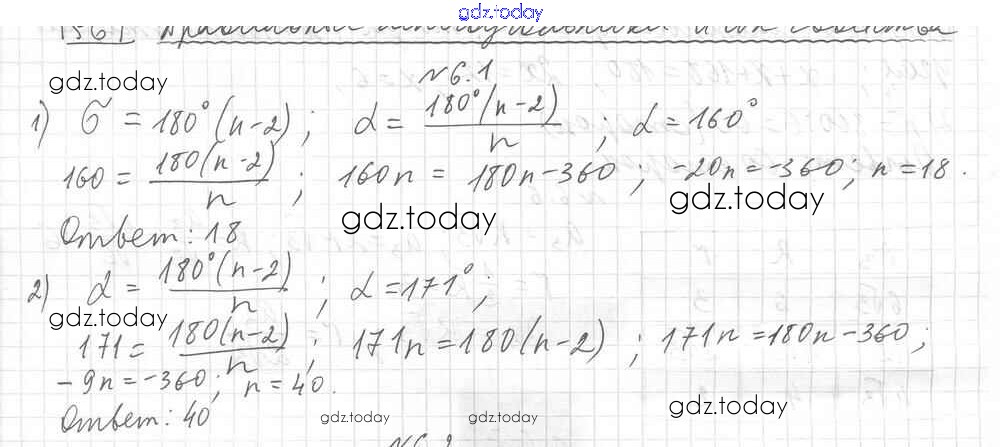 gdz.today
§6. Правильные многоугольники и их свойства
gdz.today
№6.1
1) σ = 180°(n-2); α = 180°(n-2)/n; α = 160°
160 = 180(n-2)/n; 160n = 180n-360; -20n=-360; n=18.
gdz.today
gdz.today
Ответ: 18
2) α = 180°(n-2)/n; α=171°;
gdz.today
171 = 180(n-2)/n; 171n=180(n-2); 171n=180n-360;
-9n=-360; n=40.
Ответ: 40
gdz.today
gdz.today
gdz.today
№6.2